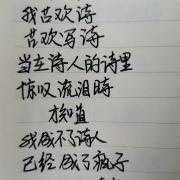 我喜欢诗
喜欢写诗
当在诗人的诗里
惊叹流泪时
才知道
我成不了诗人
已经成了疯子